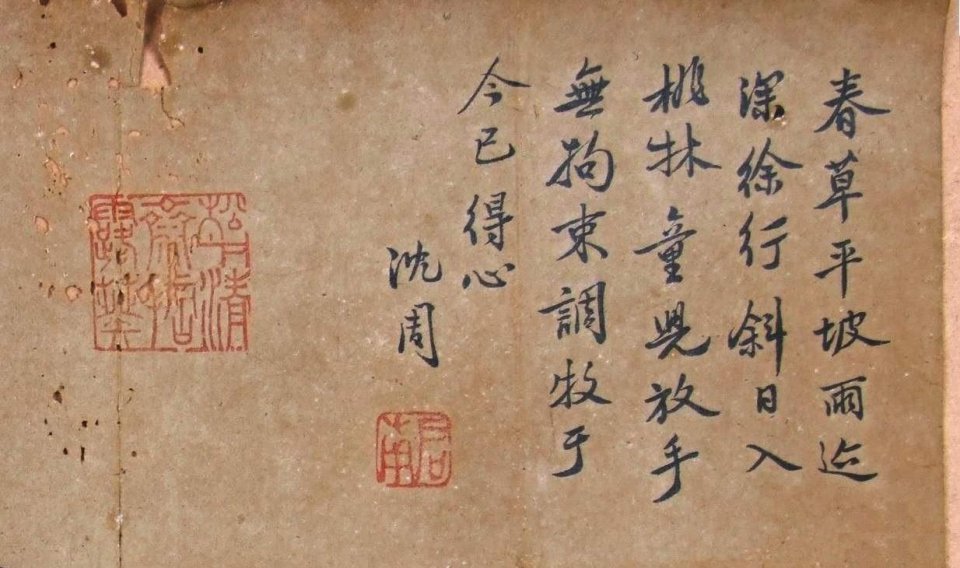 春草平坡雨迹
深徐行斜日入
桃林童兒放手
無拘束調牧于
今已得心
沈周
启南